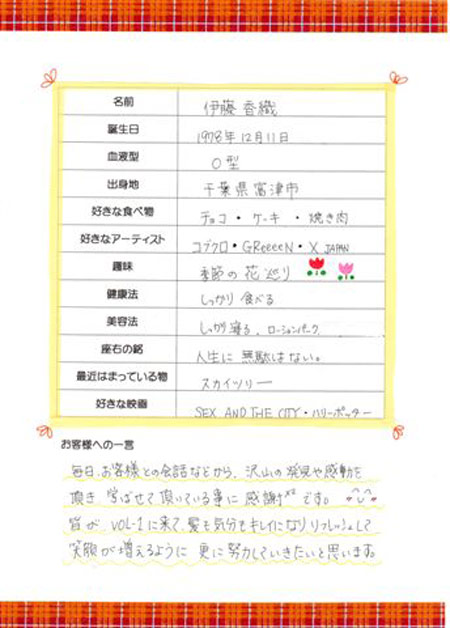 名前 伊藤 香織
誕生日 1978年12月11日
血液型 O型
出身地 千葉県富津市
好きな食べ物 チョコ・ケーキ・焼き肉
好きなアーティスト コブクロ・GReeeeN・X JAPAN
趣味 季節の花巡り
健康法 しっかり食べる
美容法 しっかり寝る、ローションパック
座右の銘 人生に無駄はない。
最近はまっている物 スカイツリー
好きな映画 SEX AND THE CITY・ハリーポッター
お客様への一言
毎日、お客様との会話などから、沢山の発見や感動を
頂き、学ばせて頂いている事に感謝です。
皆が、VOL-1に来て、髪も気分もキレイになりリフレッシュして
笑顔が増えるように更に努力していきたいと思います。